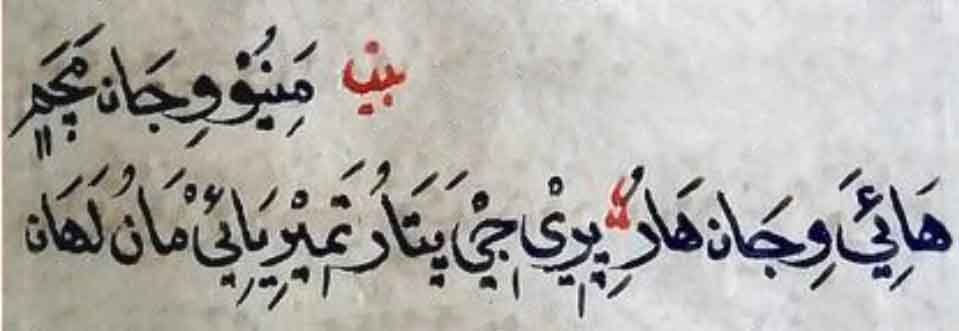 بيت مَنِيُوْ وِجَانہ مَڃَمِ
هَائِيَ وِجَانہ هَارُ پِرِيْ جِيْ پيتَارُ تَمِيْرِيَائِيْ مَانُ لَهَانہ